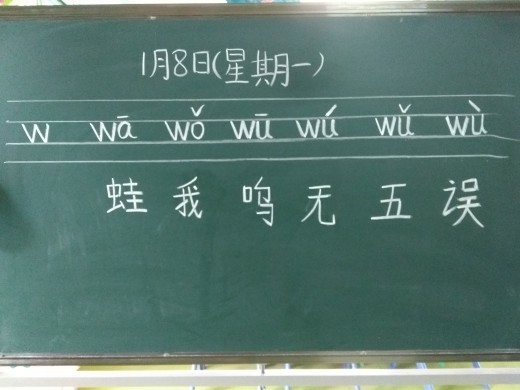 1月8日(星期一)
w wā wǒ wū wú wǔ wù
蛙 我 鸣 无 五 误